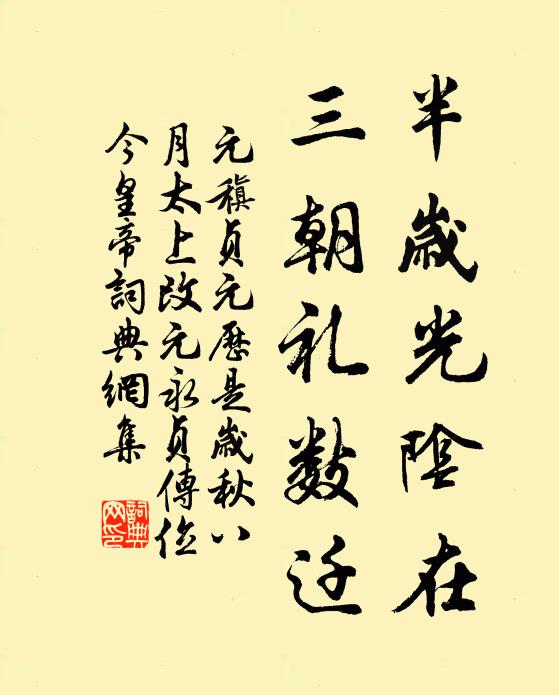 半歲光陰在
三朝礼数迁
元稹貞元歷是歲秋八
月太上改元永貞傳位
今皇帝詞典網集
詞典
网印